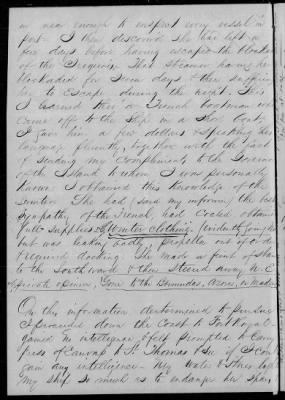 in near enough to inspect every vessel in
port - I then discovered she had left a
few days before having escaped the blockade
of the Iroquois. That Steamer having her
blockaded for Seven days & then suffering
her to Escape during the night. This
I learned thro' a French boatman who
came off to the Ship in a Shore boat,
I gave him a few dollars & speaking his
language fluently, together with the fact
of sending my Compliments to the Governor
of the Island to whom I was personally
known I obtained this knowledge of the
Sumter. She had (said my informer) the best
Sympathy of the French, had Coaled obtained
full supplies & Winter clothing, (evidently going N.)
but was leaking badly, propeller out of order
& required docking. She made a feint of start
to the Southward & then Steered away N.E.
private opinion, Gone to the Bermudas, Azores, or Madeira
On this information determined to pursue
I proceeded down the Coast to Port Royal
gained no intelligence, & felt prompted to
press of Canvas to St. Thomas & see if I could
gain any intelligence - My Water & Stores
My Ship so much as to endanger her Spars,